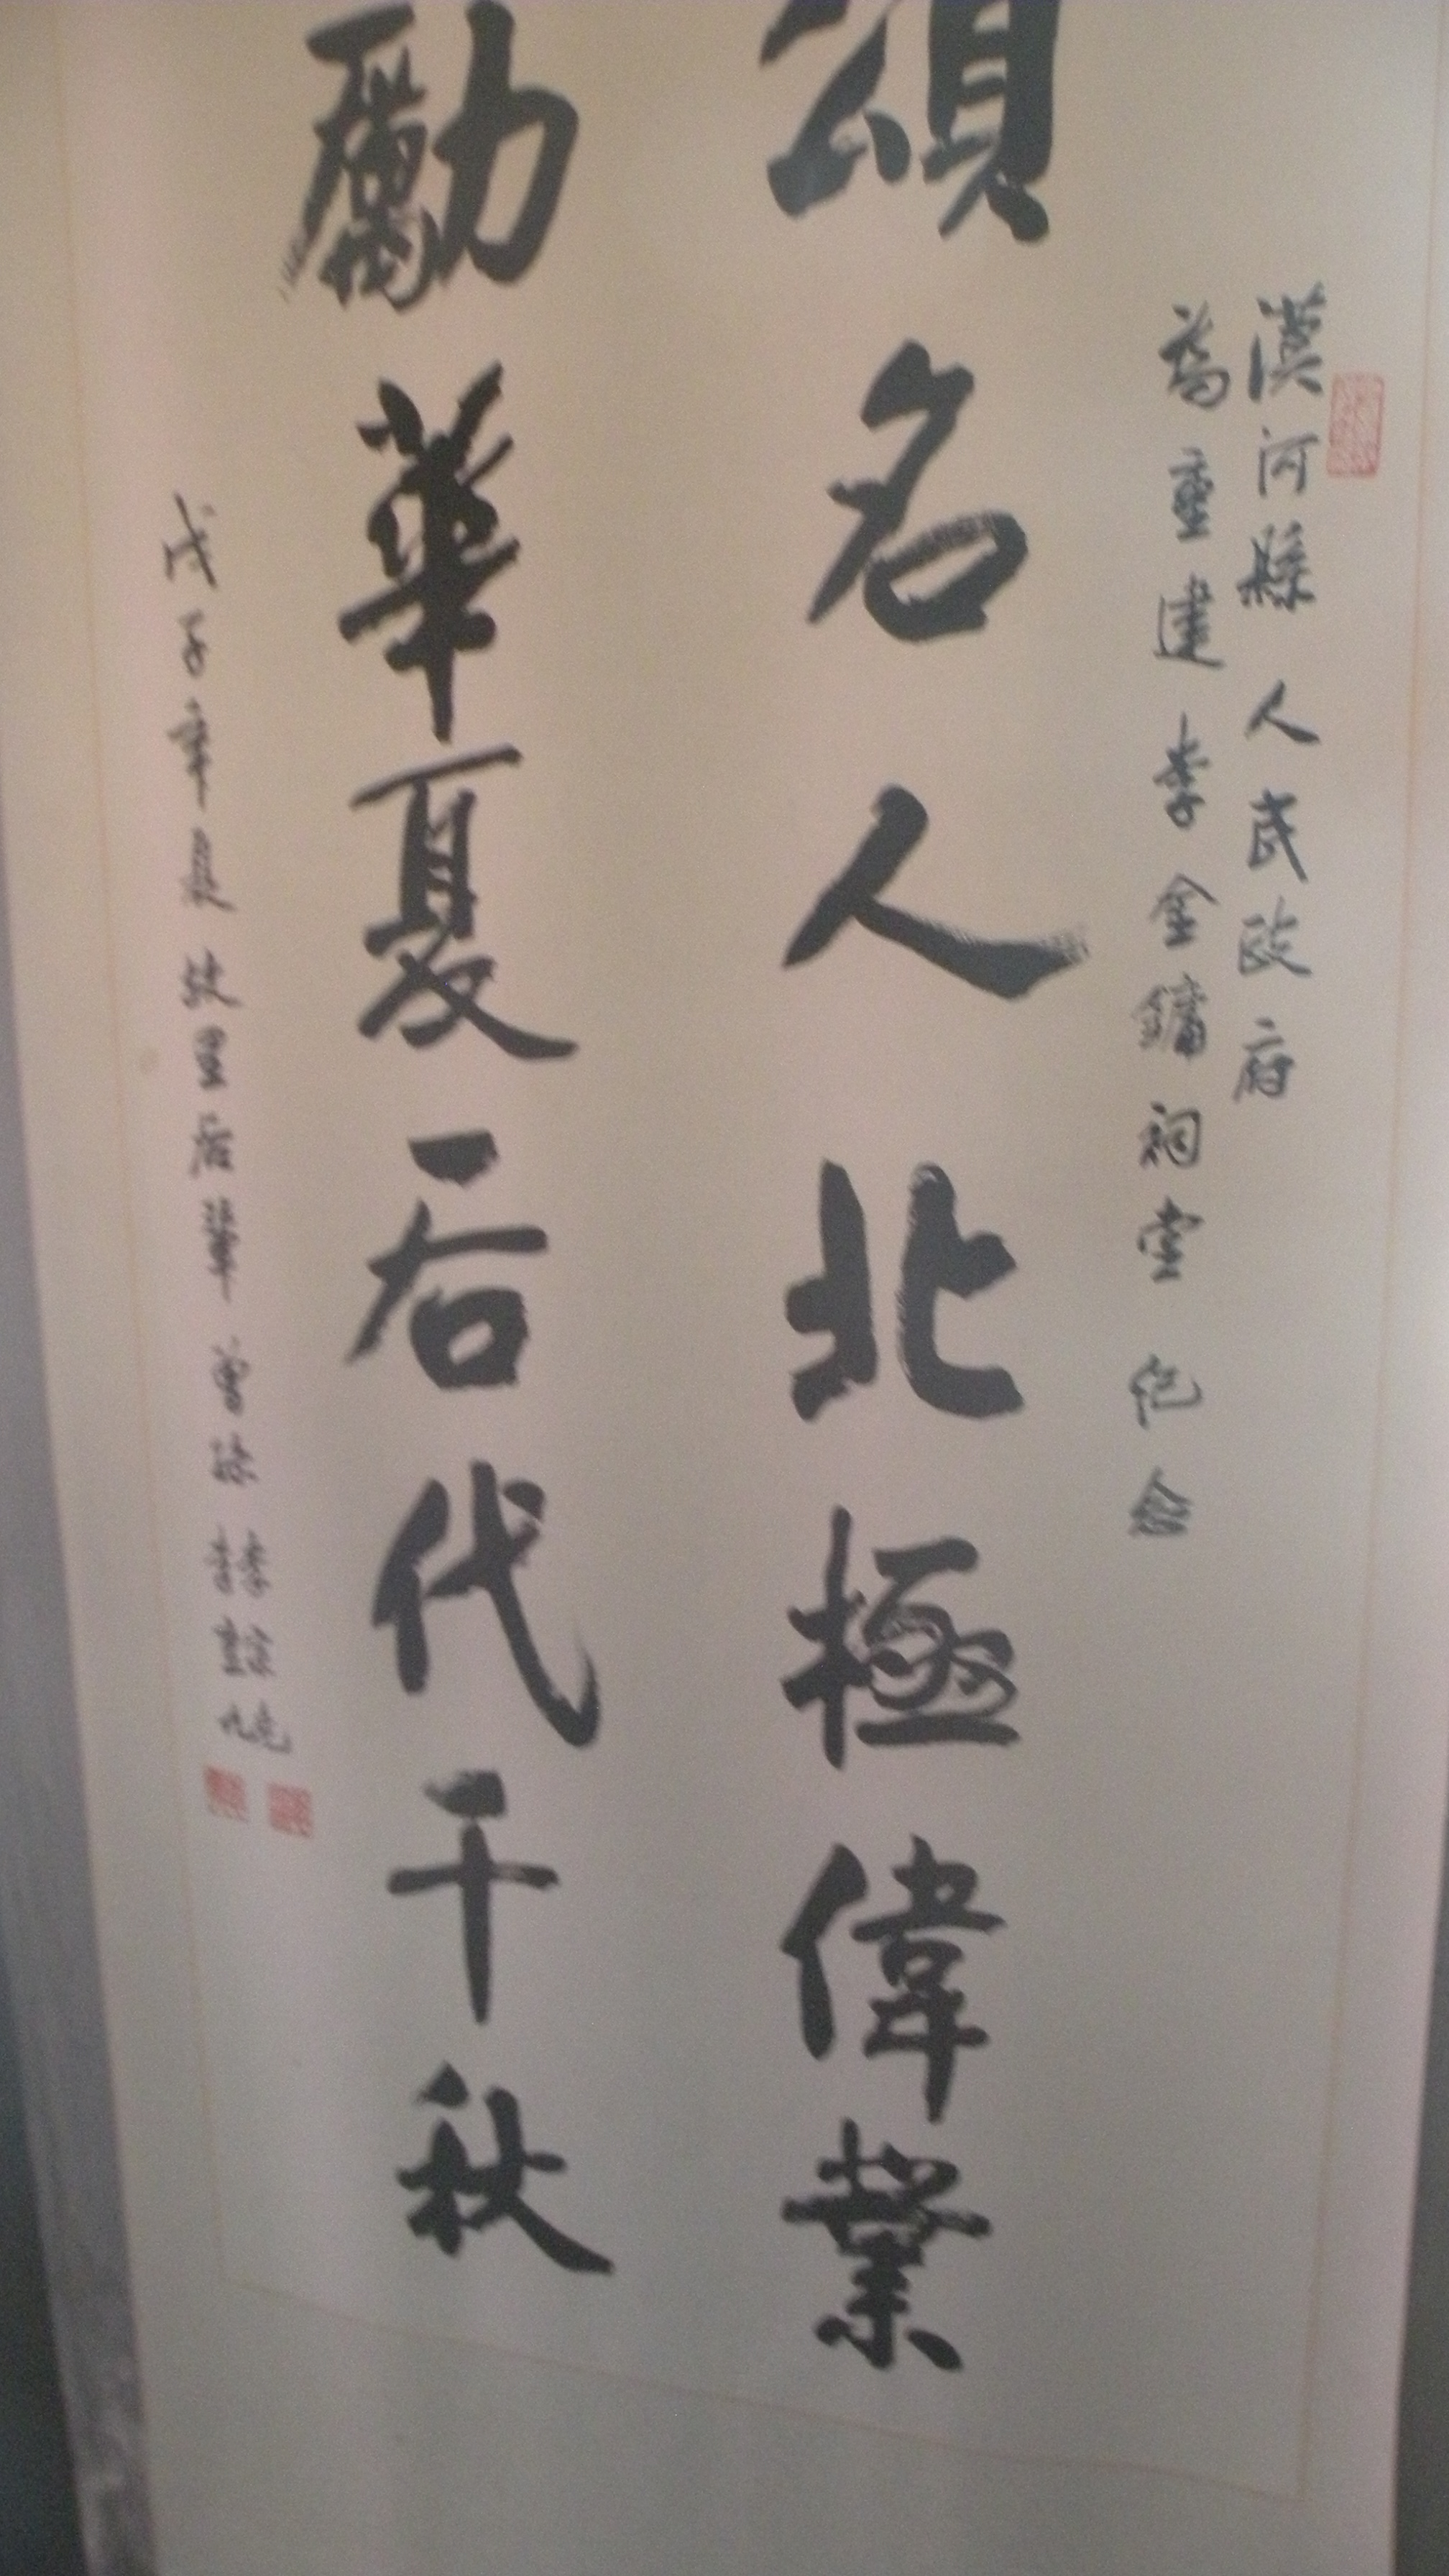 漠河縣人民政府
為重建李金鏞祠堂紀念
頌名人北極偉業
勵華夏后代千秋
戊子年夏故里后輩曾孫